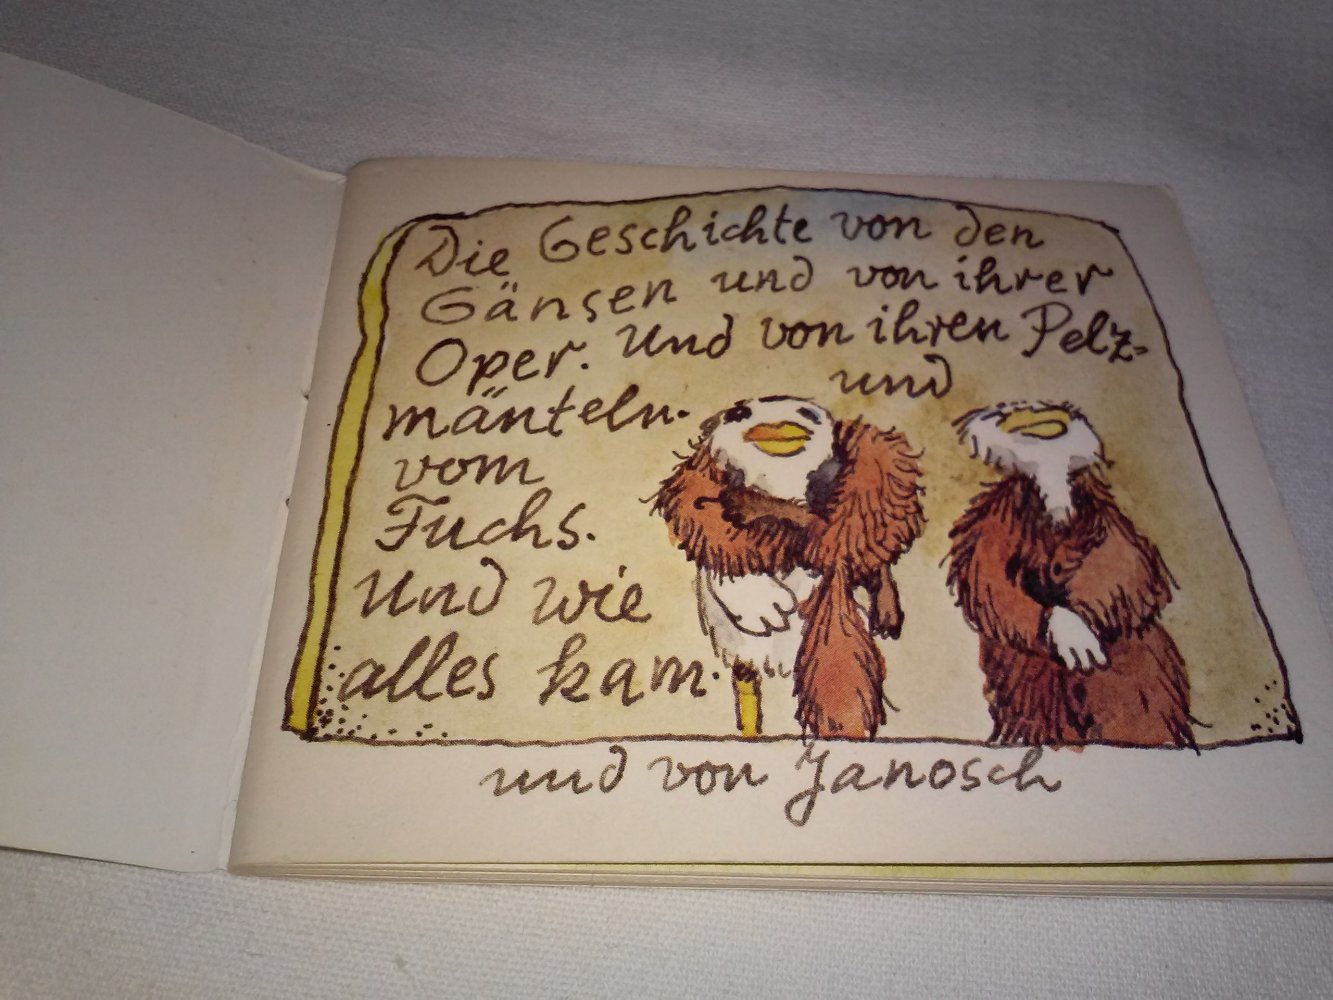 Die Geschichte von den
Gänsen und von ihrer
Oper. Und von ihren Pelz-
mänteln. und
vom
Fuchs.
Und wie
alles kam.
und von Janosch